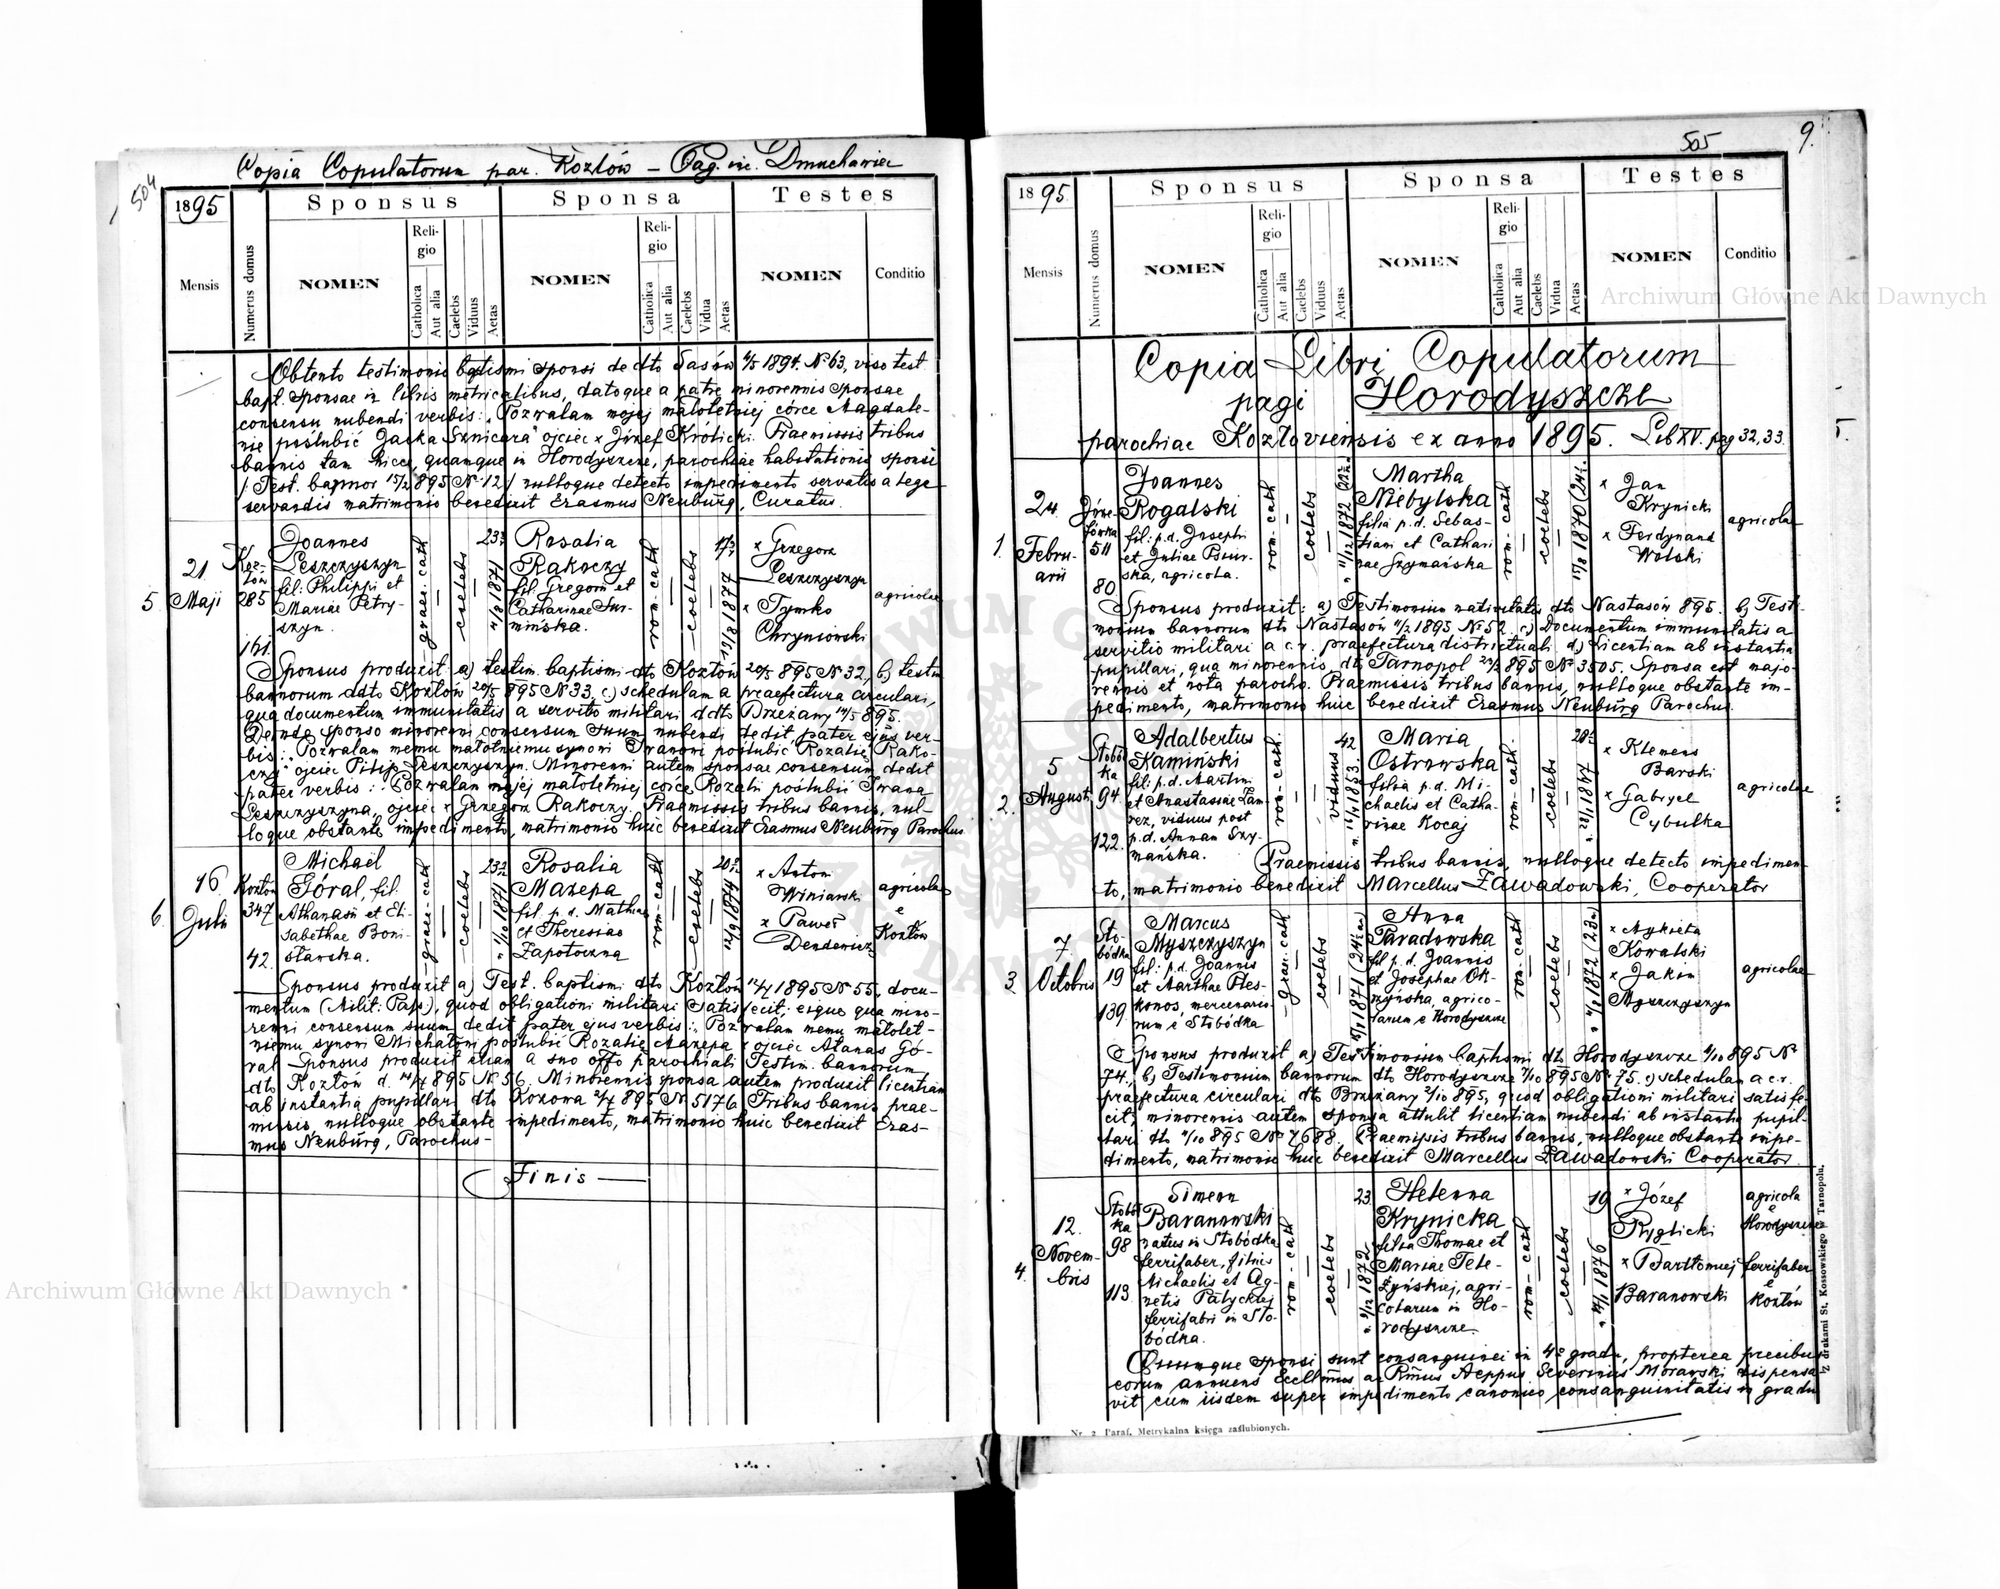 504
Copia Copulatorum par. Kozłów – Pag. Dmuchawiec
1895
Sponsus
Sponsa
Testes
Mensis
Numerus domus
NOMEN
Religio
Catholica
Aut alia
Caelebs
Viduus
Aetas
NOMEN
Religio
Catholica
Aut alia
Caelebs
Vidua
Aetas
NOMEN
Conditio
Obtento testimonio baptismi sponsi de dto Sasów 1894. No 63, viso test.
bapt. sponsae in libris metricalibus, datoque a patre minorennis sponsae
consensu nubendi verbis: „Pozwalam mojej małoletniej córce Magdale-
nie poślubić Jaśka Sznicara" ojciec x Józef Królicki. Praemissis tribus
bannis tam hicce, quamque in Horodyszcze, parochiae habitationis sponsi
/: Test. bannor 15/2 895 No 12 / nulloque detecto impedimento servatis a lege
servandis matrimonio benedixit Erasmus Neuburg, Curatus.
5.
21.
Maji
Koz-
łów
285
141.
Joannes
Leszczyszyn
fil: Philippi et
Mariae Petry-
szyn.
graec. cath
coelebs
23
Rosalia
Rakoczy
fil. Gregorii et
Catharinae Sur-
mińska.
rom-cath
coelebs
17
x Grzegorz
Leszczyszyn
x Tymko
Chryniowski
agricolae
Sponsus produxit a) testim. baptismi dto Kozłów 20/5 895 No 32, b) testim
bannorum ddto Kozłów 20/5 895 No 33, c) schedulam a praefectura circulari,
qua documentum immunitatis a servitio militari ddto Brzeżany 14/5 895.
Deinde sponso minorenni consensum suum nubendi dedit pater ejus ver-
bis: „Pozwalam memu małoletniemu synowi Iwanowi poślubić Rozalię Rako-
czy" ojciec Filip Leszczyszyn. Minorenni autem sponsae consensum dedit
pater verbis: „Pozwalam mojej małoletniej córce Rozalii poślubić Iwana
Leszczyszyna, ojciec x Grzegorz Rakoczy. Praemissis tribus bannis, nul-
loque obstante impedimento, matrimonio huic benedixit Erasmus Neuburg Parochus.
6.
16.
Julii
Kozłów
347
42.
Michaël
Góral, fil.
Athanasii et Eli-
sabethae Boni-
sławska.
graec-cath
coelebs
23
Rosalia
Mazepa
fil. p. d. Mathiae
et Theresiae
Zapotoczna
rom-cath
coelebs
20
x Anton
Winiarski
x Paweł
Dendericz
agricolae
e
Kozłów
Sponsus produxit a) Test. baptismi dto Kozłów 14/7 1895 No 55, docu-
mentum (Milit. Pass), quod obligationi militari satisfecit; eique qua mino-
renni consensum suum dedit pater ejus verbis: „Pozwalam memu małolet-
niemu synowi Michałowi poślubić Rozalię Mazepa x ojciec Atanas Gó-
ral. Sponsus produxit etiam a suo offo parochiali Testim. bannorum
dto Kozłów d. 14/7 895 No 56. Minorennis sponsa autem produxit licentiam
ab instantia pupillari dto Kozowa 895 No 5176. Tribus bannis prae-
missis, nulloque obstante impedimento, matrimonio huic benedixit Eras-
mus Neuburg, Parochus –
Finis
505
9.
1895.
Sponsus
Sponsa
Testes
Mensis
Numerus domus
NOMEN
Religio
Catholica
Aut alia
Caelebs
Viduus
Aetas
NOMEN
Religio
Catholica
Aut alia
Caelebs
Vidua
Aetas
NOMEN
Conditio
Copia Libri Copulatorum
pagi Horodyszcze
parochiae Kozłoviensis ex anno 1895. Lib XV. pag 32, 33.
1.
24.
Febru-
arii
Józe-
fówka
511
80
Joannes
Rogalski
fil: p. d. Josephi
et Juliae
agricola.
rom-cath
coelebs
Martha
Niebylska
filia p. d. Sebas-
tiani et Cathari
nae Szymańska
rom-cath
coelebs
x Jan
Krynicki
x Ferdynand
Wolski
agricolae
Sponsus produxit: a) Testimonium nativitatis dto Nastasów 895. b) Testi-
monium bannorum dto Nastasów 1895 No 52. c) Documentum immunitatis a
servitio militari a c. r. praefectura districtuali d) Licentiam ab instantia
pupillari, qua minorennis, dto Tarnopol 895 No 3505. Sponsa est majo-
rennis et nota parocho. Praemissis tribus bannis, nulloque obstante im-
pedimento, matrimonio huic benedixit Erasmus Neuburg Parochus.
2.
5
Augusti
Słobód
ka
94.
122.
Adalbertus
Kamiński
fil: p. d. Martini
et Anastasiae
viduus post
p. d. Annam Szy-
mańska.
rom-cath.
viduus
42
Maria
Ostrowska
filia p. d. Mi-
chaelis et Catha-
rinae Kocaj
rom-cath.
coelebs
28
x Klemens
Barski
x Gabryel
Cybulka
agricolae
Praemissis tribus bannis, nulloque detecto impedimen-
to, matrimonio benedixit Marcellus Zawadowski, Cooperator
3.
7
Octobris
Sło-
bódka
19
139.
Marcus
Myszczyszyn
fil: p. d. Joannis
et Marthae Ples-
konos, mercenario-
rum e Słobódka
graec. cath
coelebs
Anna
Paradowska
fil p. d. Joannis
et Josephae Ok-
rzyńska, agrico-
larum e Horodyszcze
rom-cath
coelebs
x Mykieta
Kowalski
x Jakim
Myszczyszyn
agricolae
Sponsus produxit a) Testimonium baptismi dto Horodyszcze 895 No
74, b) Testimonium bannorum dto Horodyszcze 895 No 75. c) schedulam a c. r.
praefectura circulari dto Brzeżany 2/10 895, quod obligationi militari satisfe-
cit, minorennis autem sponsa attulit licentiam nubendi ab instantia pupil-
lari dto 895 No 7688. Praemissis tribus bannis, nulloque obstante impe-
dimento, matrimonio huic benedixit Marcellus Zawadowski Cooperator.
4.
12.
Novem-
bris
Słobód
ka
98
113
Simeon
Baranowski
natus in Słobódka
ferrifaber, filius
Michaelis et Ag-
netis Patyckiej
ferrifabri in Sło-
bódka.
rom-cath
coelebs
23.
Helenna
Krynicka
filia Thomae et
Mariae Tele-
żyńskiej, agri-
colarum in Ho-
rodyszcze.
rom-cath
coelebs
19
x Józef
Ryglicki
x Bartłomiej
Baranowski
agricola
e
Horodyszcze
ferrifaber
e
Kozłów
Quumque sponsi sunt consanguinei in 4o gradu, propterea precibus
eorum annuens Excellmus ac Rmus Aeppus Severinus Morawski dispensa
vit cum iisdem super impedimento canonico consanguinitatis in gradu
Nr. 2 Paraf. Metrykalna księga zaślubionych.
Z drukarni St. Kossowskiego w Tarnopolu.
Archiwum Główne Akt Dawnych
Archiwum Główne Akt Dawnych